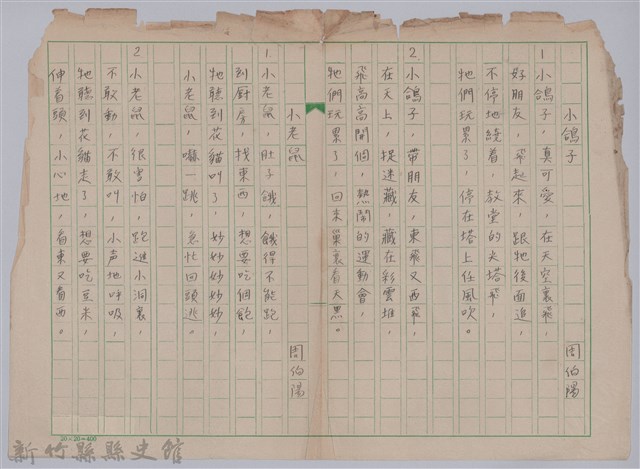 小鴿子
周伯陽
1 小鴿子，真可愛，在天空裏飛，
好朋友，飛起來，跟牠後面追，
不停地繞着，教堂的尖塔飛，
牠們玩累了，停在塔上任風吹。
2 小鴿子，帶朋友，東飛又西飛，
在天上，捉迷藏，藏在彩雲堆，
飛高高開個，熱鬧的運動會，
牠們玩累了，回來巢裏看天黑。
小老鼠
周伯陽
1. 小老鼠，肚子餓，餓得不能跑，
到厨房，找東西，想要吃個飽，
牠聽到花貓叫了，妙妙妙妙妙，
小老鼠，嚇一跳，急忙回頭逃。
2 小老鼠，很害怕，跑進小洞裏，
不敢動，不敢叫，小声地呼吸，
牠聽到花貓走了，想要吃豆米，
伸着頭，小心地，看東又看西。
20×20=400
新竹縣縣史館